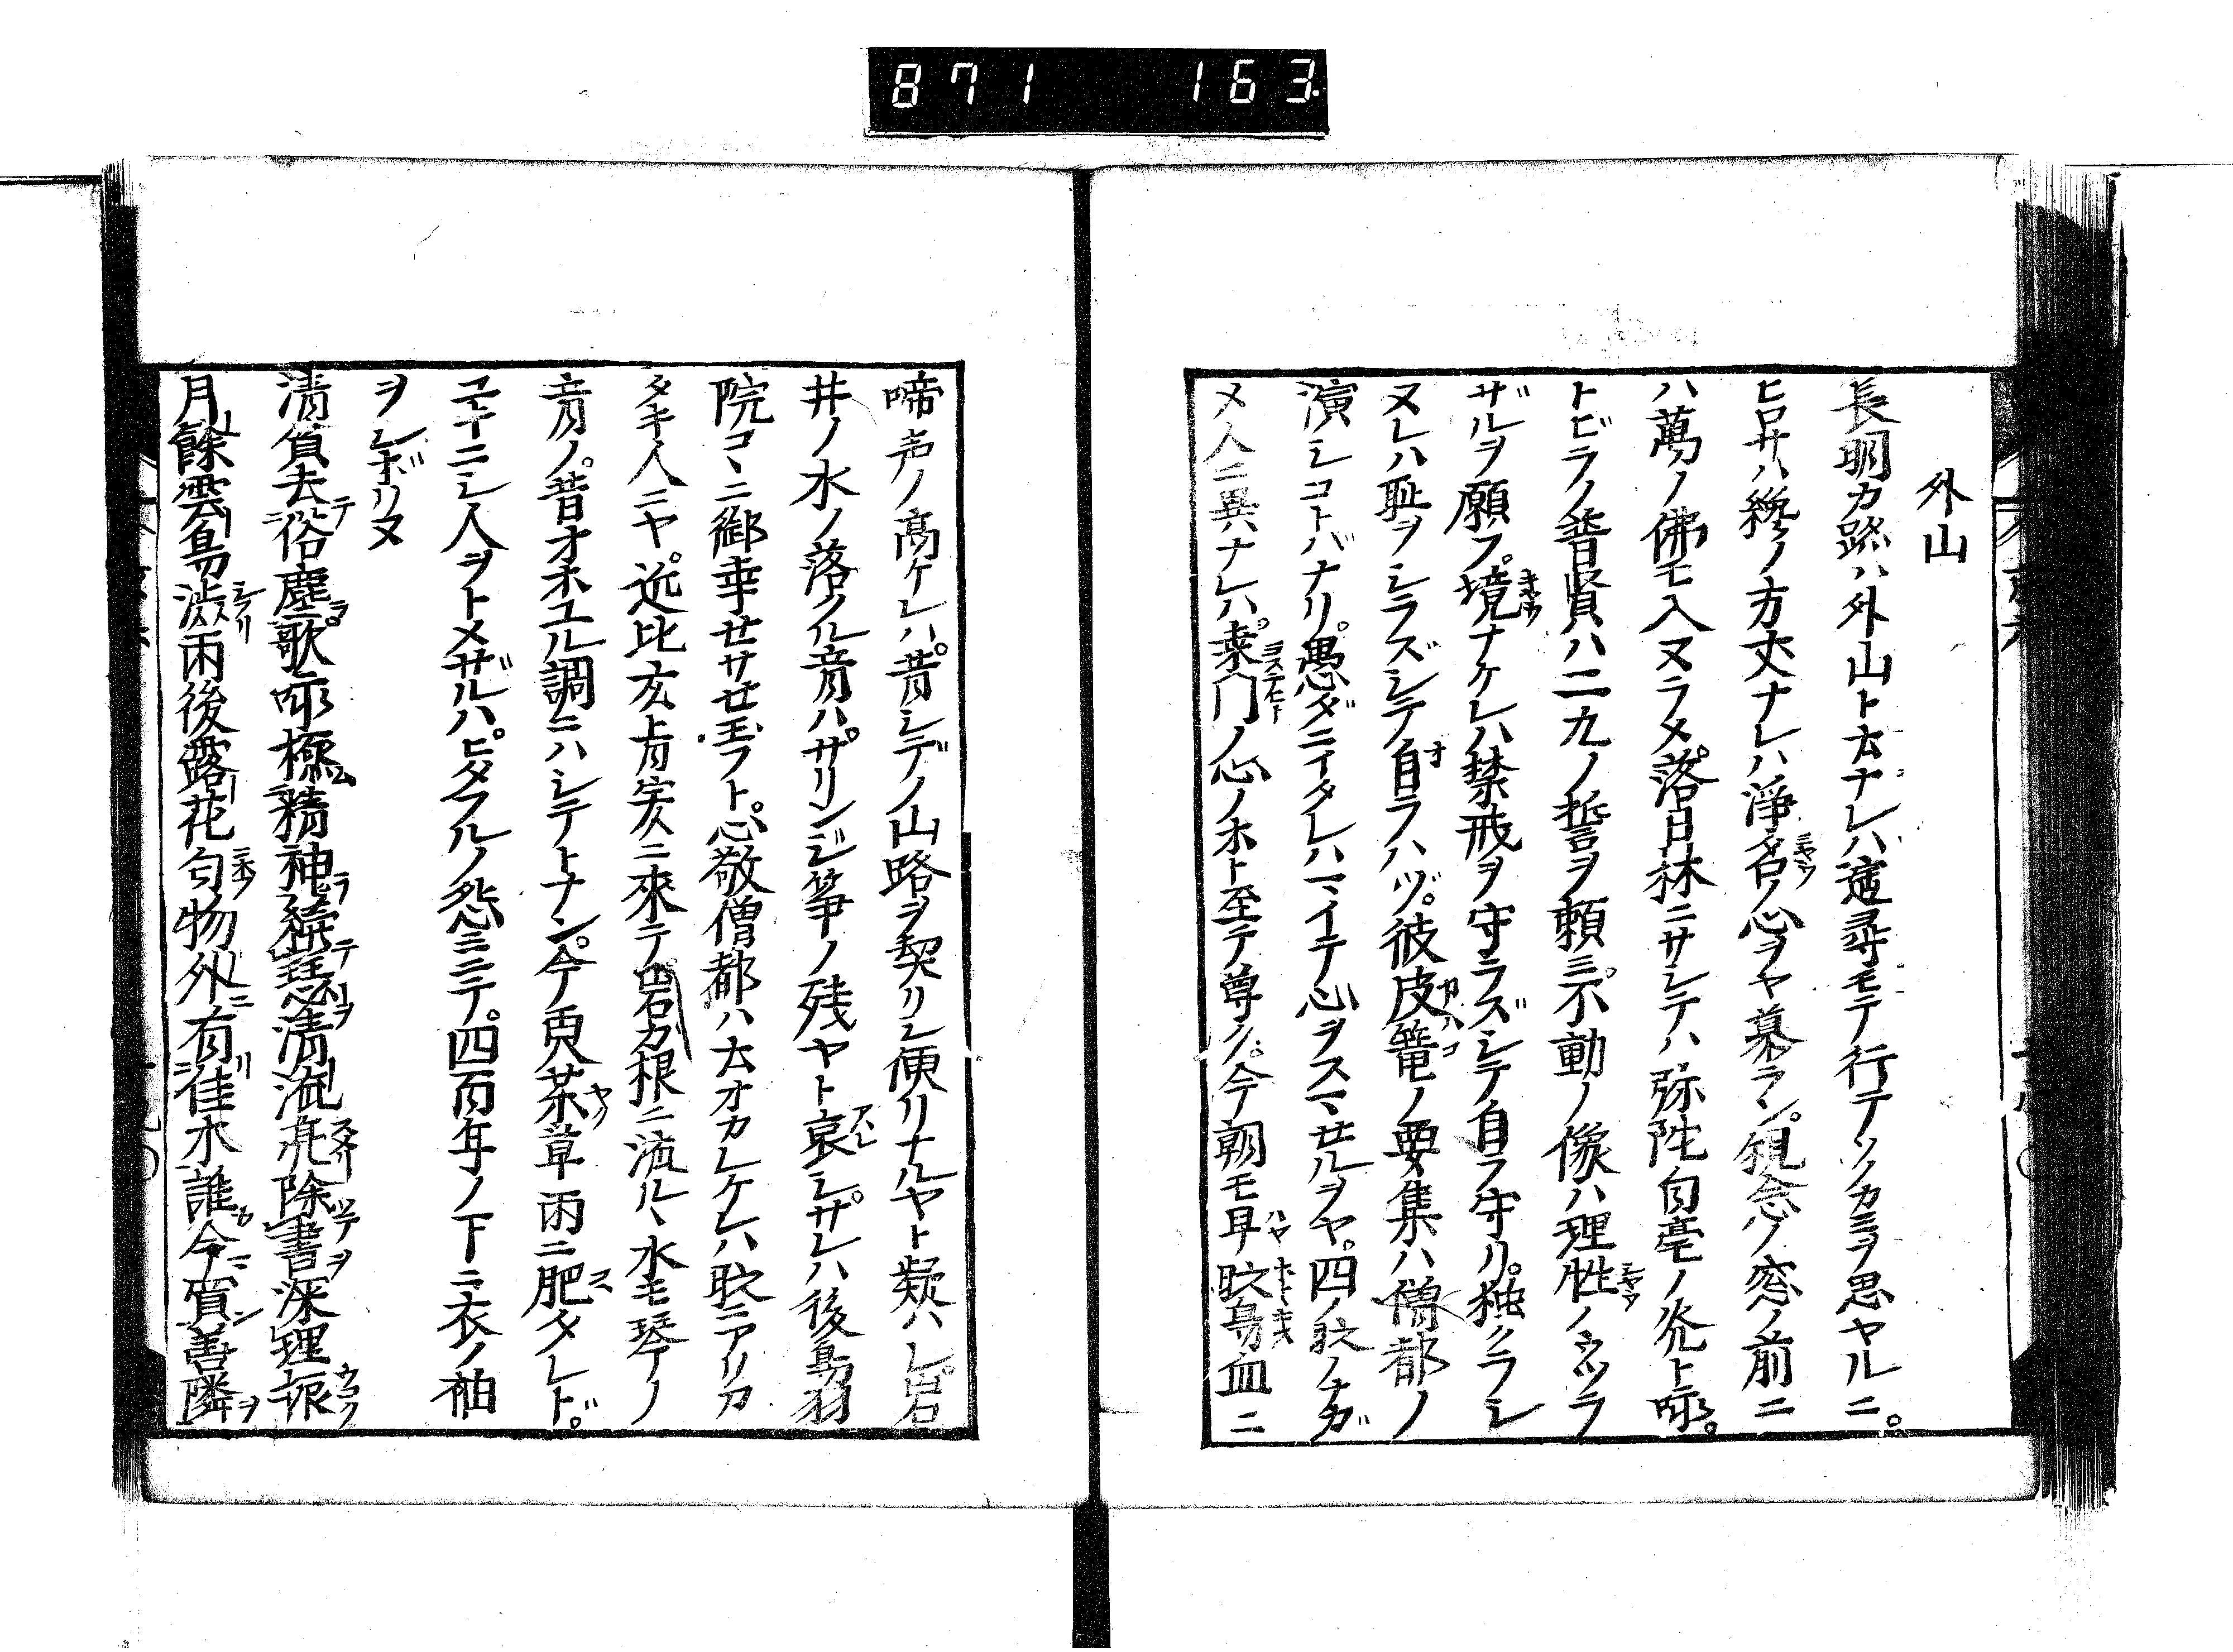 871 163
外山
長明カ跡ハ外山ト云ナレハ遠尋モテ行テソノカミヲ思ヤルニ。
ヒロサハ纔ノ方丈ナレハ淨名ノ心ヲヤ慕ラン。観念ノ窓ノ前ニ
ハ萬ノ佛モ入ヌラメ。落日林ニサシテハ弥陀白毫ノ光ト詠。
トビラノ普賢ハ二九ノ誓ヲ頼ミ。不動ノ像ハ理性ノウツラ
ザルヲ願フ。境ナケレハ禁戒ヲ守ラズシテ自ラ守リ。独クラシ
ヌレハ耻ヲシラズシテ自ラハヅ。彼皮篭ノ要集ハ僧都ノ
演シコトバナリ。愚ダニイタレハコヽイテ心ヲスマセルヲヤ。四ノ時ノナガ
メ人ニ異ナレハ。桒門ノ心ノホト至テ尊ク。今朝モ早時鳥血ニ
啼声ノ高ケレハ。昔シデノ山路ヲ契リシ便リナルヤト疑ハレ。岩
井ノ水ノ落クル音ハ。サリンジ箏ノ残ヤト哀シ。サレハ後鳥羽
院コヽニ御幸セサセ玉フト。心敬僧都ハ云オカレケレハ時ニアリカ
タキ人ニヤ。近比玄上月実ニ來テ。岩カ根ニ流ルヽ水モ琴ノ
音ノ。昔オホユル調ニハシテトナン。今ノ更茶草雨ニ肥タレド。
コヽニニシ人ヲトメザルハ。ヒタフルノ怨ミニテ。四百年ノ下ニ衣ノ袖
ヲシボリヌ
清貧去俗塵歌詠極精神續琵流亮除書深理振
月餘雲鳥澁雨後露花匂物外有佳水誰今買善隣